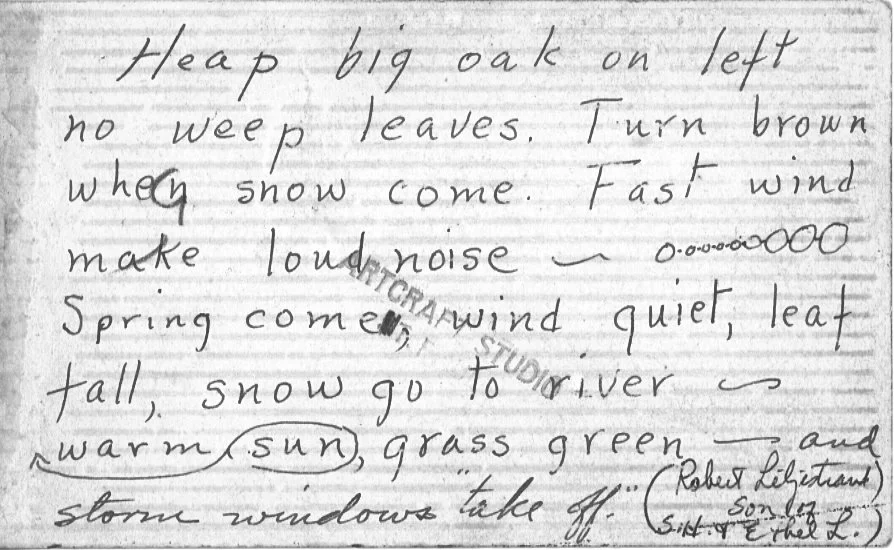 Heap big oak on left
no weep leaves. Turn brown
when snow come. Fast wind
make loud noise — o.o.o.o.oOOO
Spring come, wind quiet, leaf
fall, snow go to river ~
warm (sun), grass green — and
storm windows "take off." (Robert Liljestrand
son of
S.H. & Ethel L.)
ARTCRAFT STUDIO